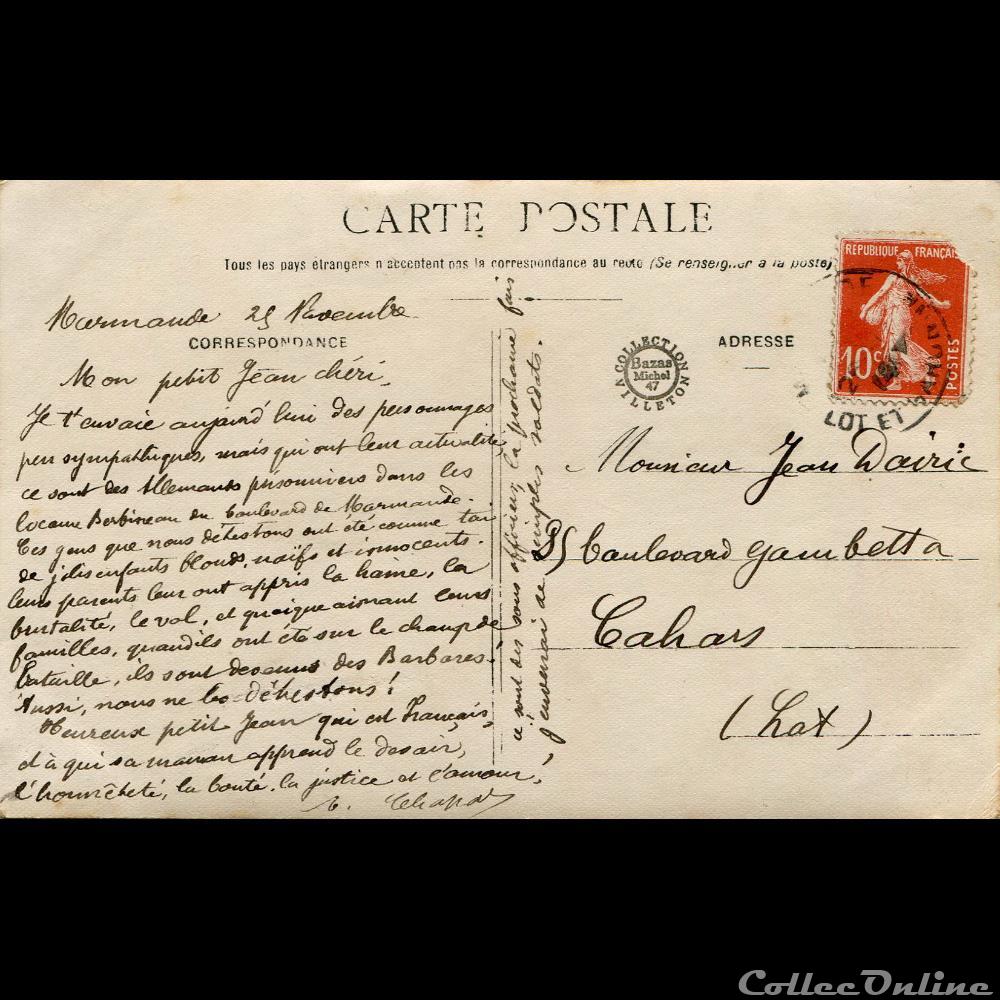 CARTE POSTALE
Tous les pays étrangers n acceptent pas la correspondance au recto (Se renseigner a la poste)
Marmande 25 Novembre
CORRESPONDANCE
Mon petit Jean chéri,
Je t'envoie aujourd'hui des personnages
peu sympathiques, mais qui ont leur actualité
ce sont des Allemands prisonniers dans les
locaux Berbineau du boulevard de Marmande.
Ces gens que nous détestons ont été comme toi
de jolis enfants blonds, naïfs et innocents.
leurs parents leur ont appris la haine, la
brutalité, le vol, et quoique aimant leurs
familles, quand ils ont été sur le champ de
bataille, ils sont devenus des Barbares.
Aussi, nous les détestons!
Heureux petit Jean qui est Français,
et à qui sa maman apprend le devoir,
l'honnêteté, la bonté, la justice et l'amour!
ce sont des sous officiers, la prochaine fois
j'enverrai de simples soldats.
COLLECTION
Bazas
Michel
47
VILLETON
ADRESSE
REPUBLIQUE FRANÇAIS
10 c
POSTES
MARMANDE
LOT ET
Monsieur Jean Dairic
35 boulevard Gambetta
Cahors
(Lot)
CollecOnline